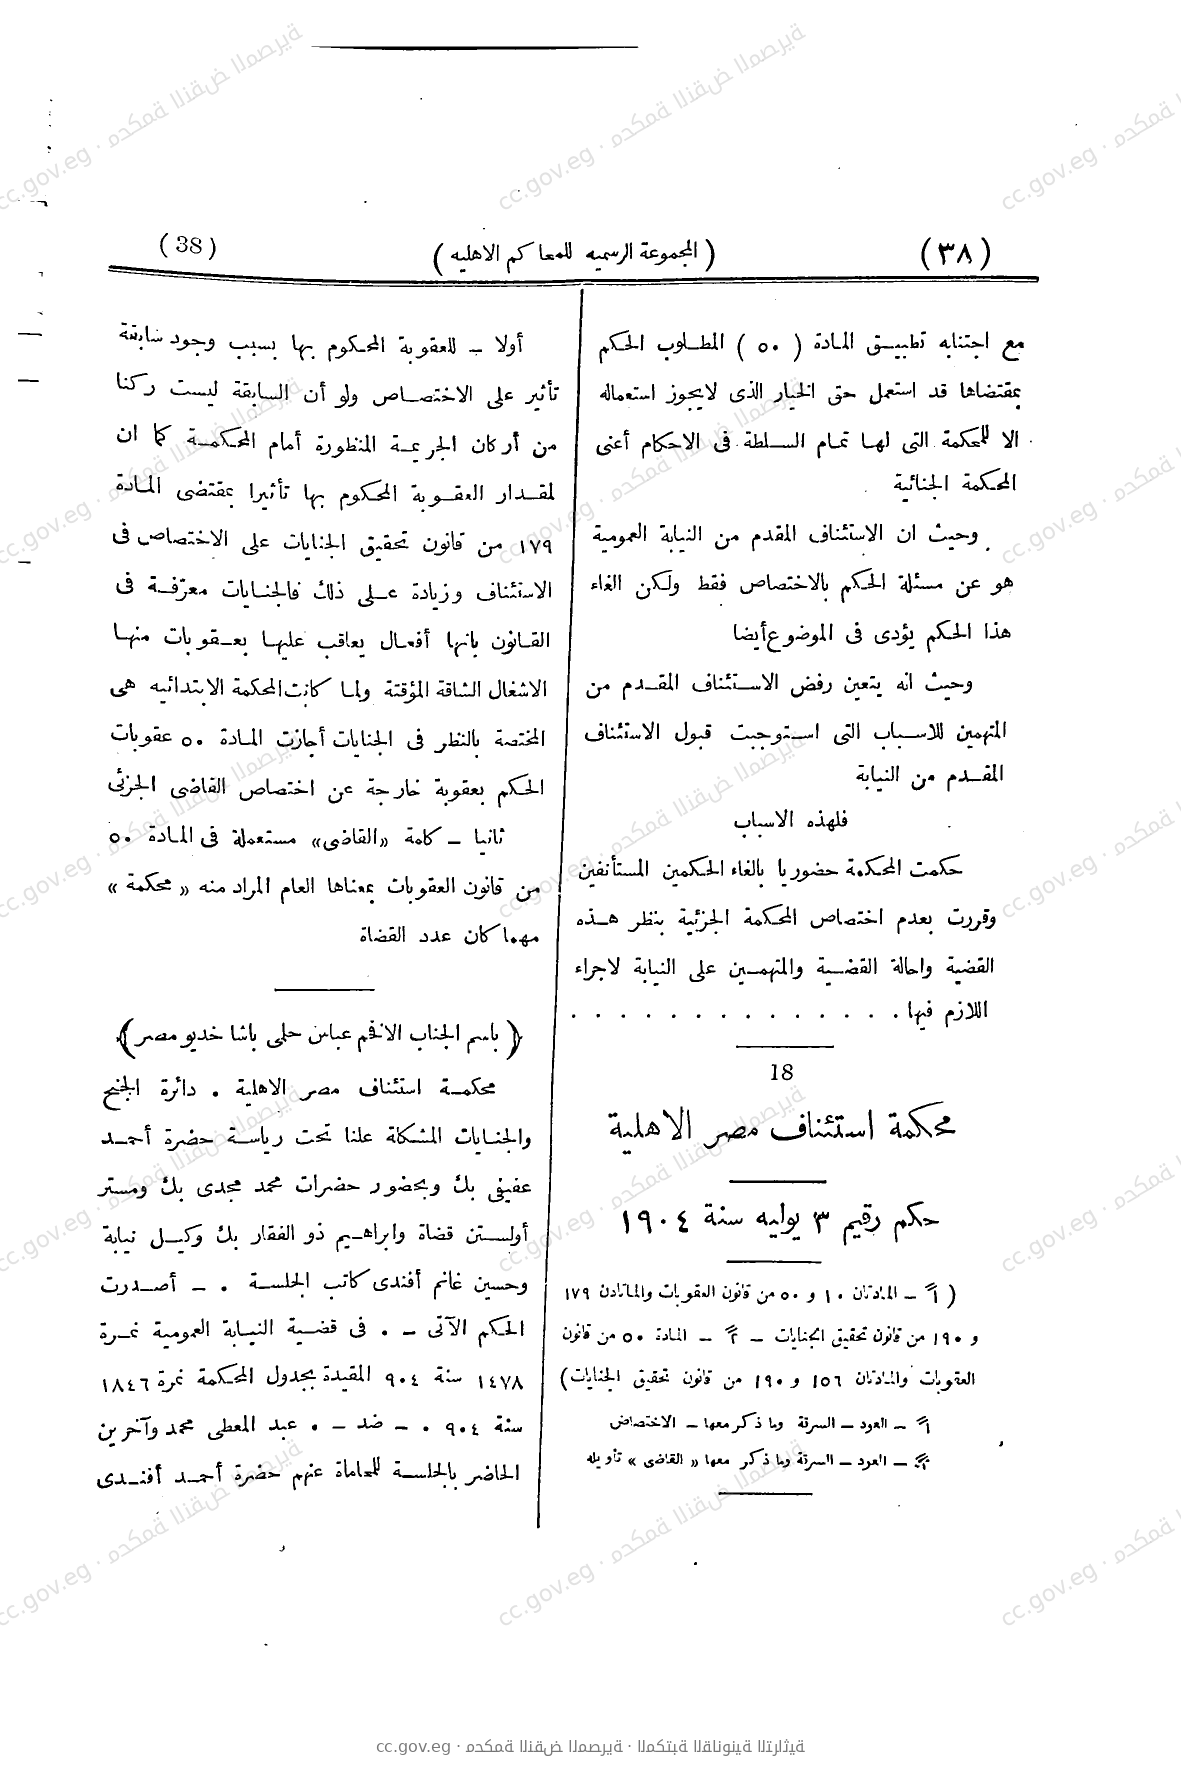 (٣٨)
(المجموعة الرسميه للمحاكم الاهليه)
(38)
مع اجتنابه تطبيق المادة (٥٠) المطلوب الحكم
بمقتضاها قد استعمل حق الخيار الذى لايجوز استعماله
الا للمحكمة التى لها تمام السلطة فى الاحكام أعنى
المحكمة الجنائية
وحيث ان الاستئناف المقدم من النيابة العمومية
هو عن مسئلة الحكم بالاختصاص فقط ولكن الغاء
هذا الحكم يؤدى فى الموضوع أيضا
وحيث انه يتعين رفض الاستئناف المقدم من
المتهمين للاسباب التى استوجبت قبول الاستئناف
المقدم من النيابة
فلهذه الاسباب
حكمت المحكمة حضوريا بالغاء الحكمين المستأنفين
وقررت بعدم اختصاص المحكمة الجزئية بنظر هذه
القضية واحالة القضية والمتهمين على النيابة لاجراء
اللازم فيها . . . . . . . . . . . . . .
18
محكمة استئناف مصر الاهلية
حكم رقيم ٣ يوليه سنة ١٩٠٤
(١ً – المادتان ١٠ و ٥٠ من قانون العقوبات والمادتان ١٧٩
و ١٩٠ من قانون تحقيق الجنايات – ٢ً – المادة ٥٠ من قانون
العقوبات والمادتان ١٥٦ و ١٩٠ من قانون تحقيق الجنايات)
١ً – العود – السرقة وما ذكر معها – الاختصاص
٢ً – العود – السرقة وما ذكر معها « القاضى » تأويله
أولا – للعقوبة المحكوم بها بسبب وجود سابقة
تأثير على الاختصاص ولو أن السابقة ليست ركنا
من أركان الجريمة المنظورة أمام المحكمة كما ان
لمقدار العقوبة المحكوم بها تأثيرا بمقتضى المادة
١٧٩ من قانون تحقيق الجنايات على الاختصاص فى
الاستئناف وزيادة على ذلك فالجنايات معرّفة فى
القانون بانها أفعال يعاقب عليها بعقوبات منها
الاشغال الشاقة المؤقتة ولما كانت المحكمة الابتدائيه هى
المختصة بالنظر فى الجنايات أجازت المادة ٥٠ عقوبات
الحكم بعقوبة خارجة عن اختصاص القاضى الجزئى
ثانيا – كلمة «القاضى» مستعملة فى المادة ٥٠
من قانون العقوبات بمعناها العام المراد منه « محكمة »
مهما كان عدد القضاة
(باسم الجناب الافخم عباس حلمى باشا خديو مصر)
محكمة استئناف مصر الاهلية . دائرة الجنح
والجنايات المشكلة علنا تحت رياسة حضرة أحمد
عفيفى بك وبحضور حضرات محمد مجدى بك ومستر
أولستن قضاة وابراهيم ذو الفقار بك وكيل نيابة
وحسين غانم أفندى كاتب الجلسة . – أصدرت
الحكم الآتى – . فى قضية النيابة العمومية نمرة
١٤٧٨ سنة ٩٠٤ المقيدة بجدول المحكمة نمرة ١٨٤٦
سنة ٩٠٤ . – ضد – . عبد المعطى محمد وآخرين
الحاضر بالجلسة للمحاماة عنهم حضرة أحمد أفندى
cc.gov.eg · محكمة النقض المصرية · المكتبة القانونية التراثية